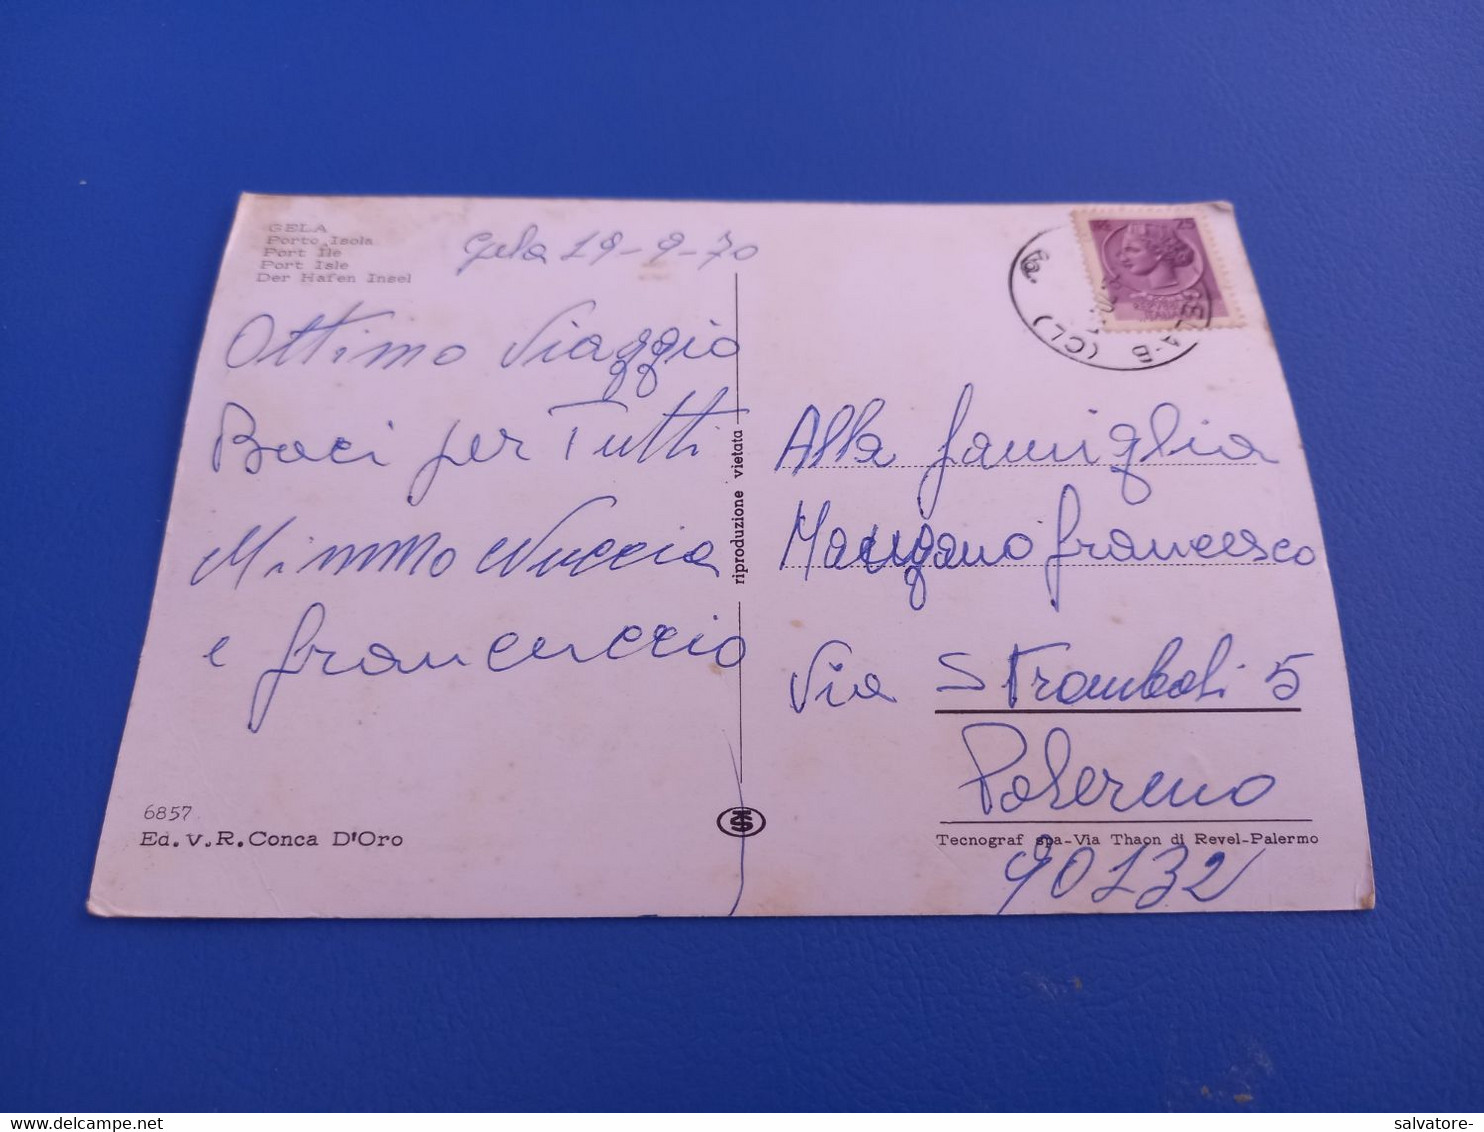 GELA
Porto Isola
Port Ile
Port Isle
Der Hafen Insel
Gela 19-9-70
Ottimo Viaggio
Baci per Tutti
Mimmo Nuccia
e francuccio
6857
Ed. V. R. Conca D'Oro
riproduzione vietata
25
GELA-B (CL)
Alla famiglia
Mangano francesco
Via Stromboli 5
Palermo
Tecnograf spa-Via Thaon di Revel-Palermo
90132
salvatore-